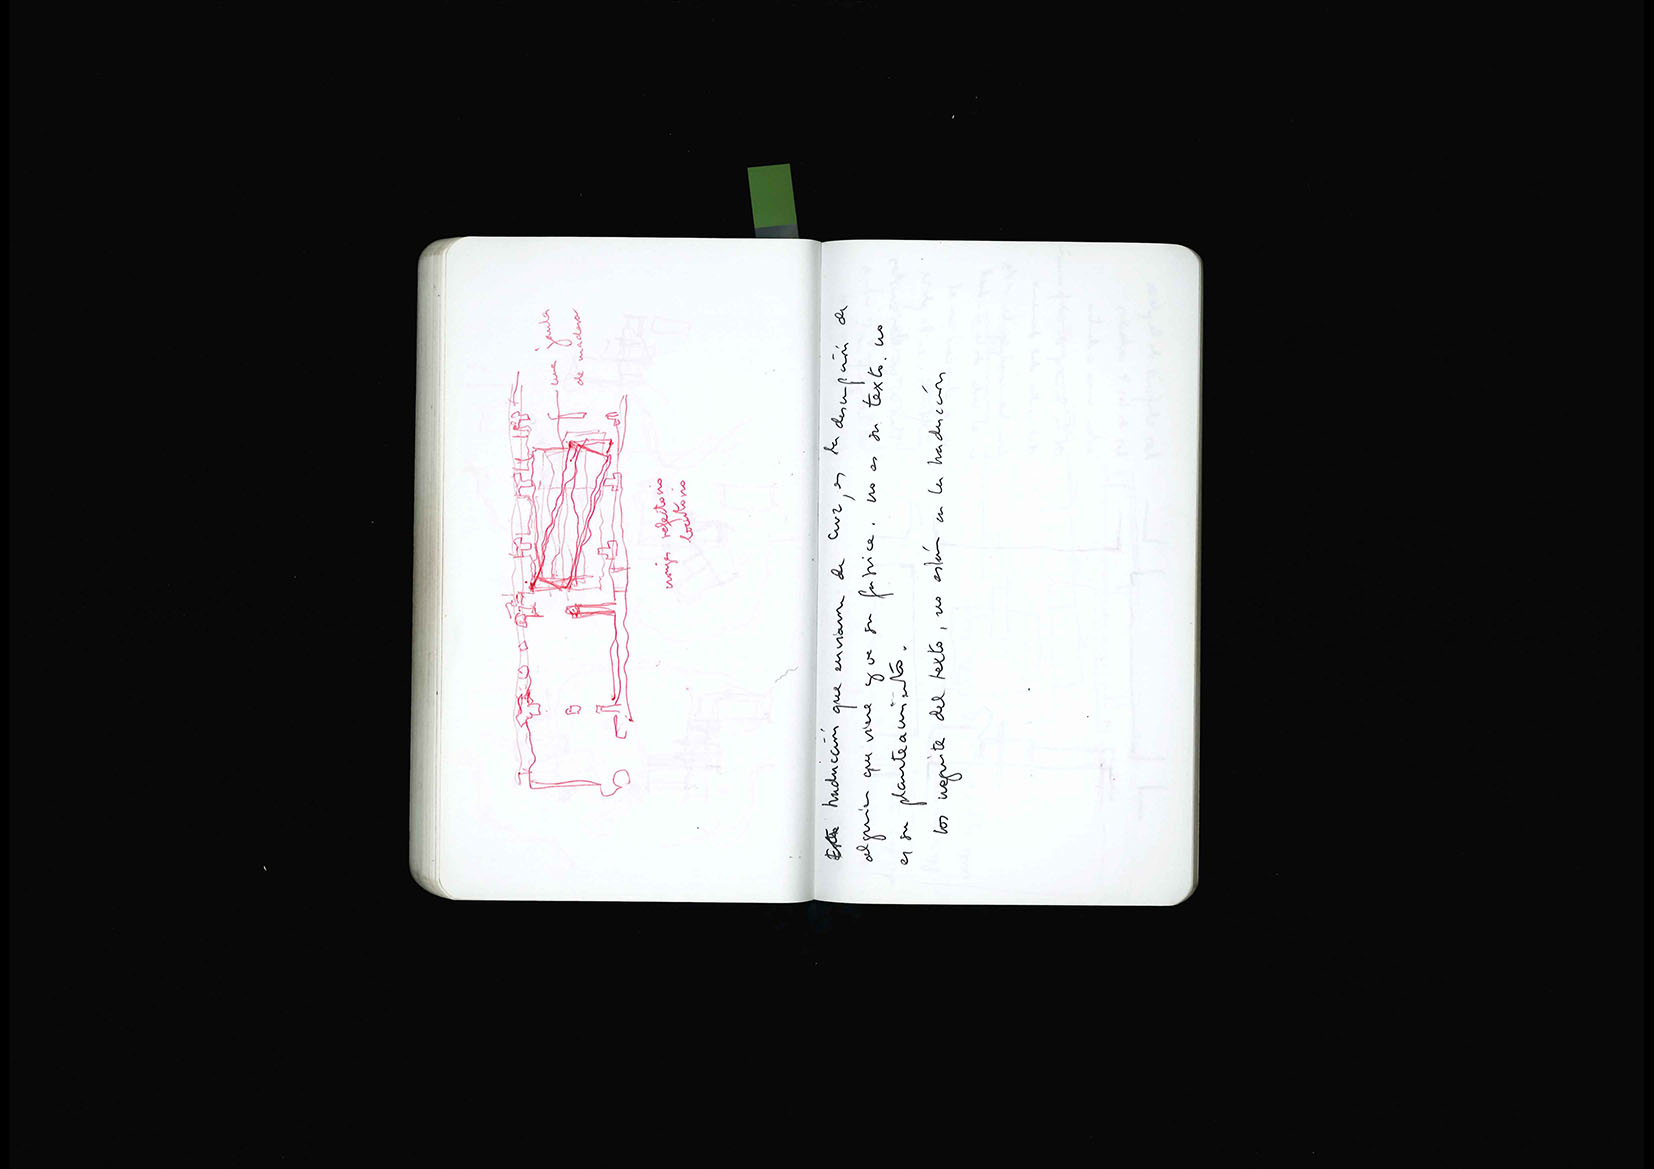 una jaula
de madera
refectorio
Esta traducción que enviaron de Cruz, es la descripción de
alguien que viene y ve su fabrica. no es su texto. no
es su planteamiento.
los del texto, no están en la traducción